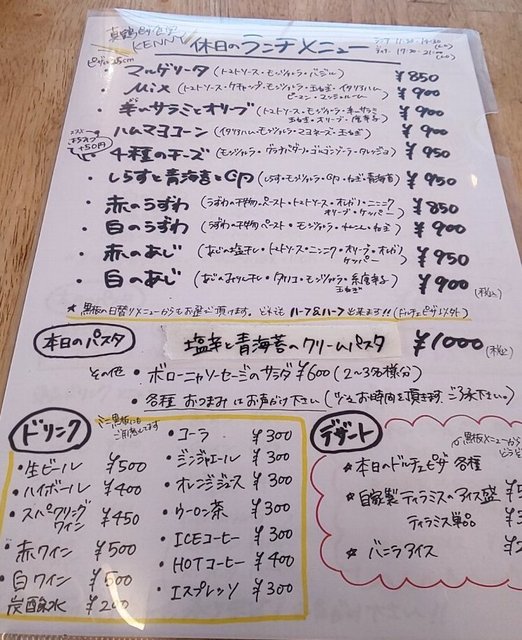 真鶴ピザ食堂 KENNY
休日のランチメニュー
ランチ 11:30-14:30 (L.O)
ディナー 17:30-21:00 (L.O)
ピザ 25cm
・マルゲリータ (トマトソース・モッツァレラ・バジル) ¥850
・Mix (トマトソース・ケチャップ・モッツァレラ・玉ねぎ・イタリアハム ピーマン・マッシュルーム) ¥900
・辛いサラミとオリーブ (トマトソース・モッツァレラ・辛いサラミ 玉ねぎ・オリーブ・唐辛子) ¥900
・ハムマヨコーン (イタリアハム・モッツァレラ・マヨネーズ・玉ねぎ) ¥900
+50円
・4種のチーズ (モッツァレラ・グラナパダーノ・ゴルゴンゾーラ・タレッジョ) ¥950
・しらすと青海苔 (しらす・モッツァレラ・ねぎ・青海苔) ¥950
・赤のうずわ (うずわの干物ペースト・トマトソース・オレガノ・ニンニク オリーブ・ケッパー) ¥850
・白のうずわ (うずわの干物ペースト・モッツァレラ・ねぎ) ¥900
・赤のあじ (あじの塩干し・トマトソース・ニンニク・オリーブ・オレガノ ケッパー) ¥950
・白のあじ (あじのみりん干し・モッツァレラ・糸唐辛子 玉ねぎ) ¥900 (税込)
★黒板の日替りメニューからもお選び頂けます。どれでもハーフ&ハーフ出来ます!! (ドルチェピザ以外)
本日のパスタ 塩辛と青海苔のクリームパスタ ¥1000 (税込)
その他・ボローニャソーセージのサラダ ¥600 (2~3名様分)
・各種おつまみはお声がけ下さい (少々お時間を頂きます、ご了承下さい。)
ドリンク
ミニ黒板にもご用意してます
・生ビール ¥500
・ハイボール ¥400
・スパークリングワイン ¥450
・赤ワイン ¥500
・白ワイン ¥500
炭酸水 ¥200
・コーラ ¥300
・ジンジャエール ¥300
・オレンジジュース ¥300
・ウーロン茶 ¥300
・ICEコーヒー ¥300
・HOTコーヒー ¥400
・エスプレッソ ¥300
デザート
黒板メニューから
★本日のドルチェピザ 各種
★自家製ティラミスのアイス盛
ティラミス単品
★バニラアイス